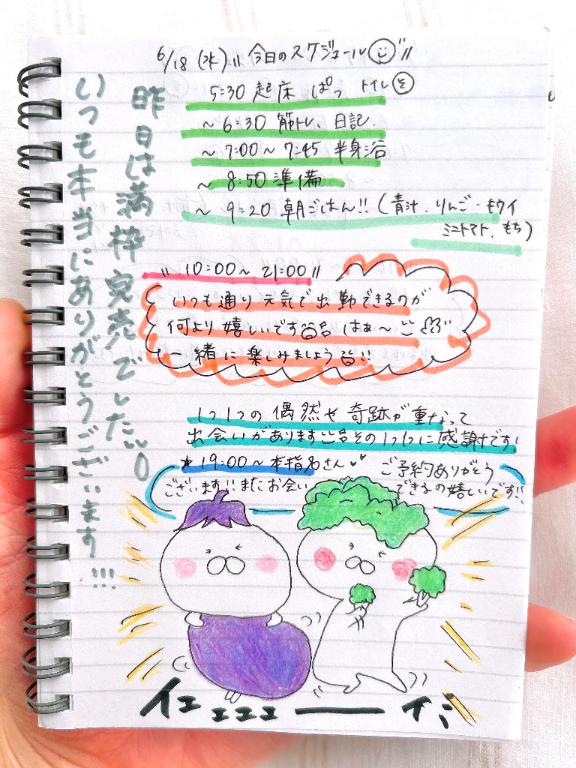 6/18 (水) 〃 今日のスケジュール 〃
5:30 起床 ぱっ トイレ
〜 6:30 筋トレ、日記
〜 7:00 〜 7:45 半身浴
〜 8:50 準備
〜 9:20 朝ごはん!! (青汁、りんご、キウイ
ミニトマト、もち)
昨日は満枠完売でした
いつも本当にありがとうございます!!!
〃 10:00〜 21:00 〃
いつも通り元気で出勤できるのが
何より嬉しいです はぁ〜
一緒に楽しみましょう !!
1つ1つの偶然や奇跡が重なって
出会いがあります その1つ1つに感謝です!
★19:00〜本指名さん♥♥ ご予約ありがとう
ございます!! またお会いできるの嬉しいです!!
イェェェェーーイ